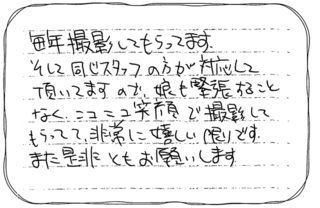 毎年撮影してもらってます.
そして同じスタッフの方が対応して
頂いてますので、娘も緊張すること
なく、ニコニコ笑顔で撮影して
もらってて、非常に嬉しい限りです.
また是非ともお願いします